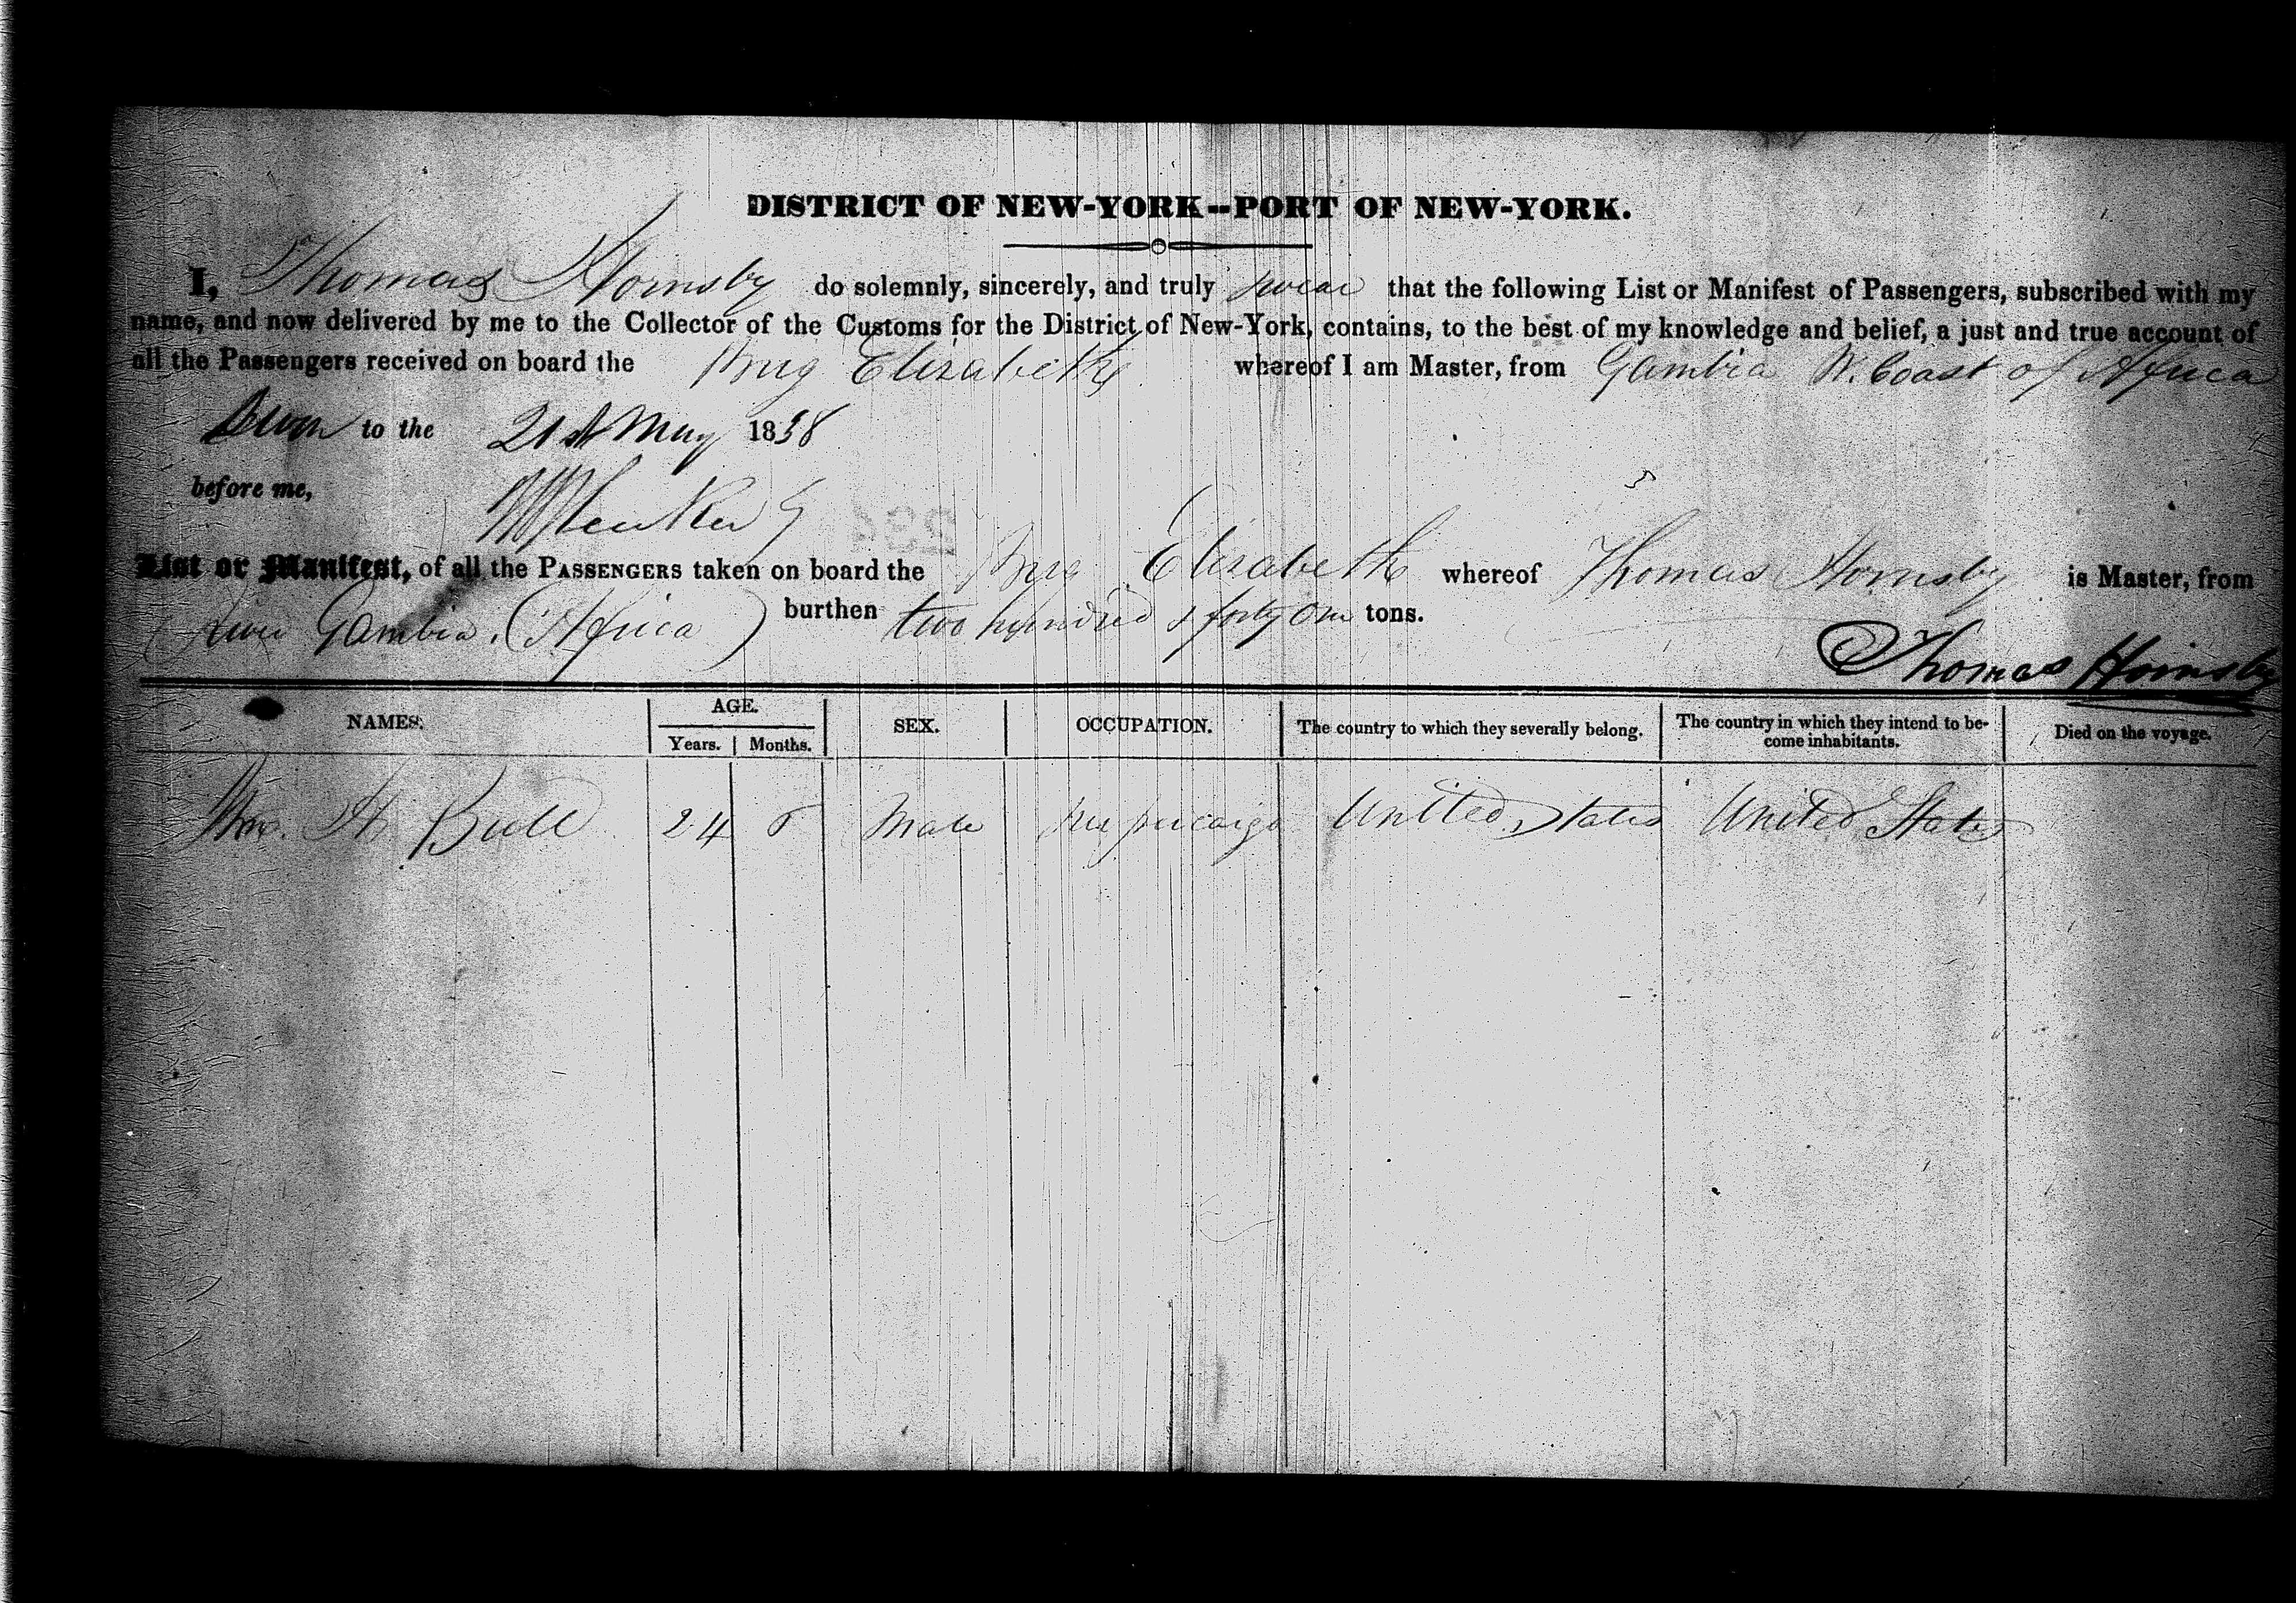 DISTRICT OF NEW-YORK--PORT OF NEW-YORK.
I, Thomas Hornsby do solemnly, sincerely, and truly swear that the following List or Manifest of Passengers, subscribed with my
name, and now delivered by me to the Collector of the Customs for the District of New-York, contains, to the best of my knowledge and belief, a just and true account of
all the Passengers received on board the Brig Elizabeth whereof I am Master, from Gambia W. Coast of Africa
Sworn to the 21st May 1838
before me,
List or Manifest, of all the PASSENGERS taken on board the Brig Elizabeth whereof Thomas Hornsby is Master, from
River Gambia. (Africa) burthen two hundred & forty one tons.
Thomas Hornsby
NAMES. AGE. SEX. OCCUPATION. The country to which they severally belong. The country in which they intend to be-
come inhabitants. Died on the voyage.
Years. Months.
Bull 24 Male Supercargo United States United States